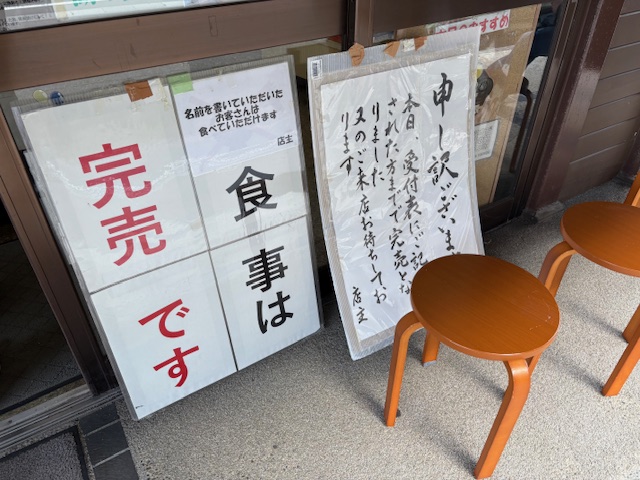 食事は
完売です
名前を書いていただいた
お客さんは
食べていただけます
店主
申し訳ございま
本日、受付表にご記
された方までで完売とな
りました
又のご来店お待ちしてお
ります
店主
おすすめ